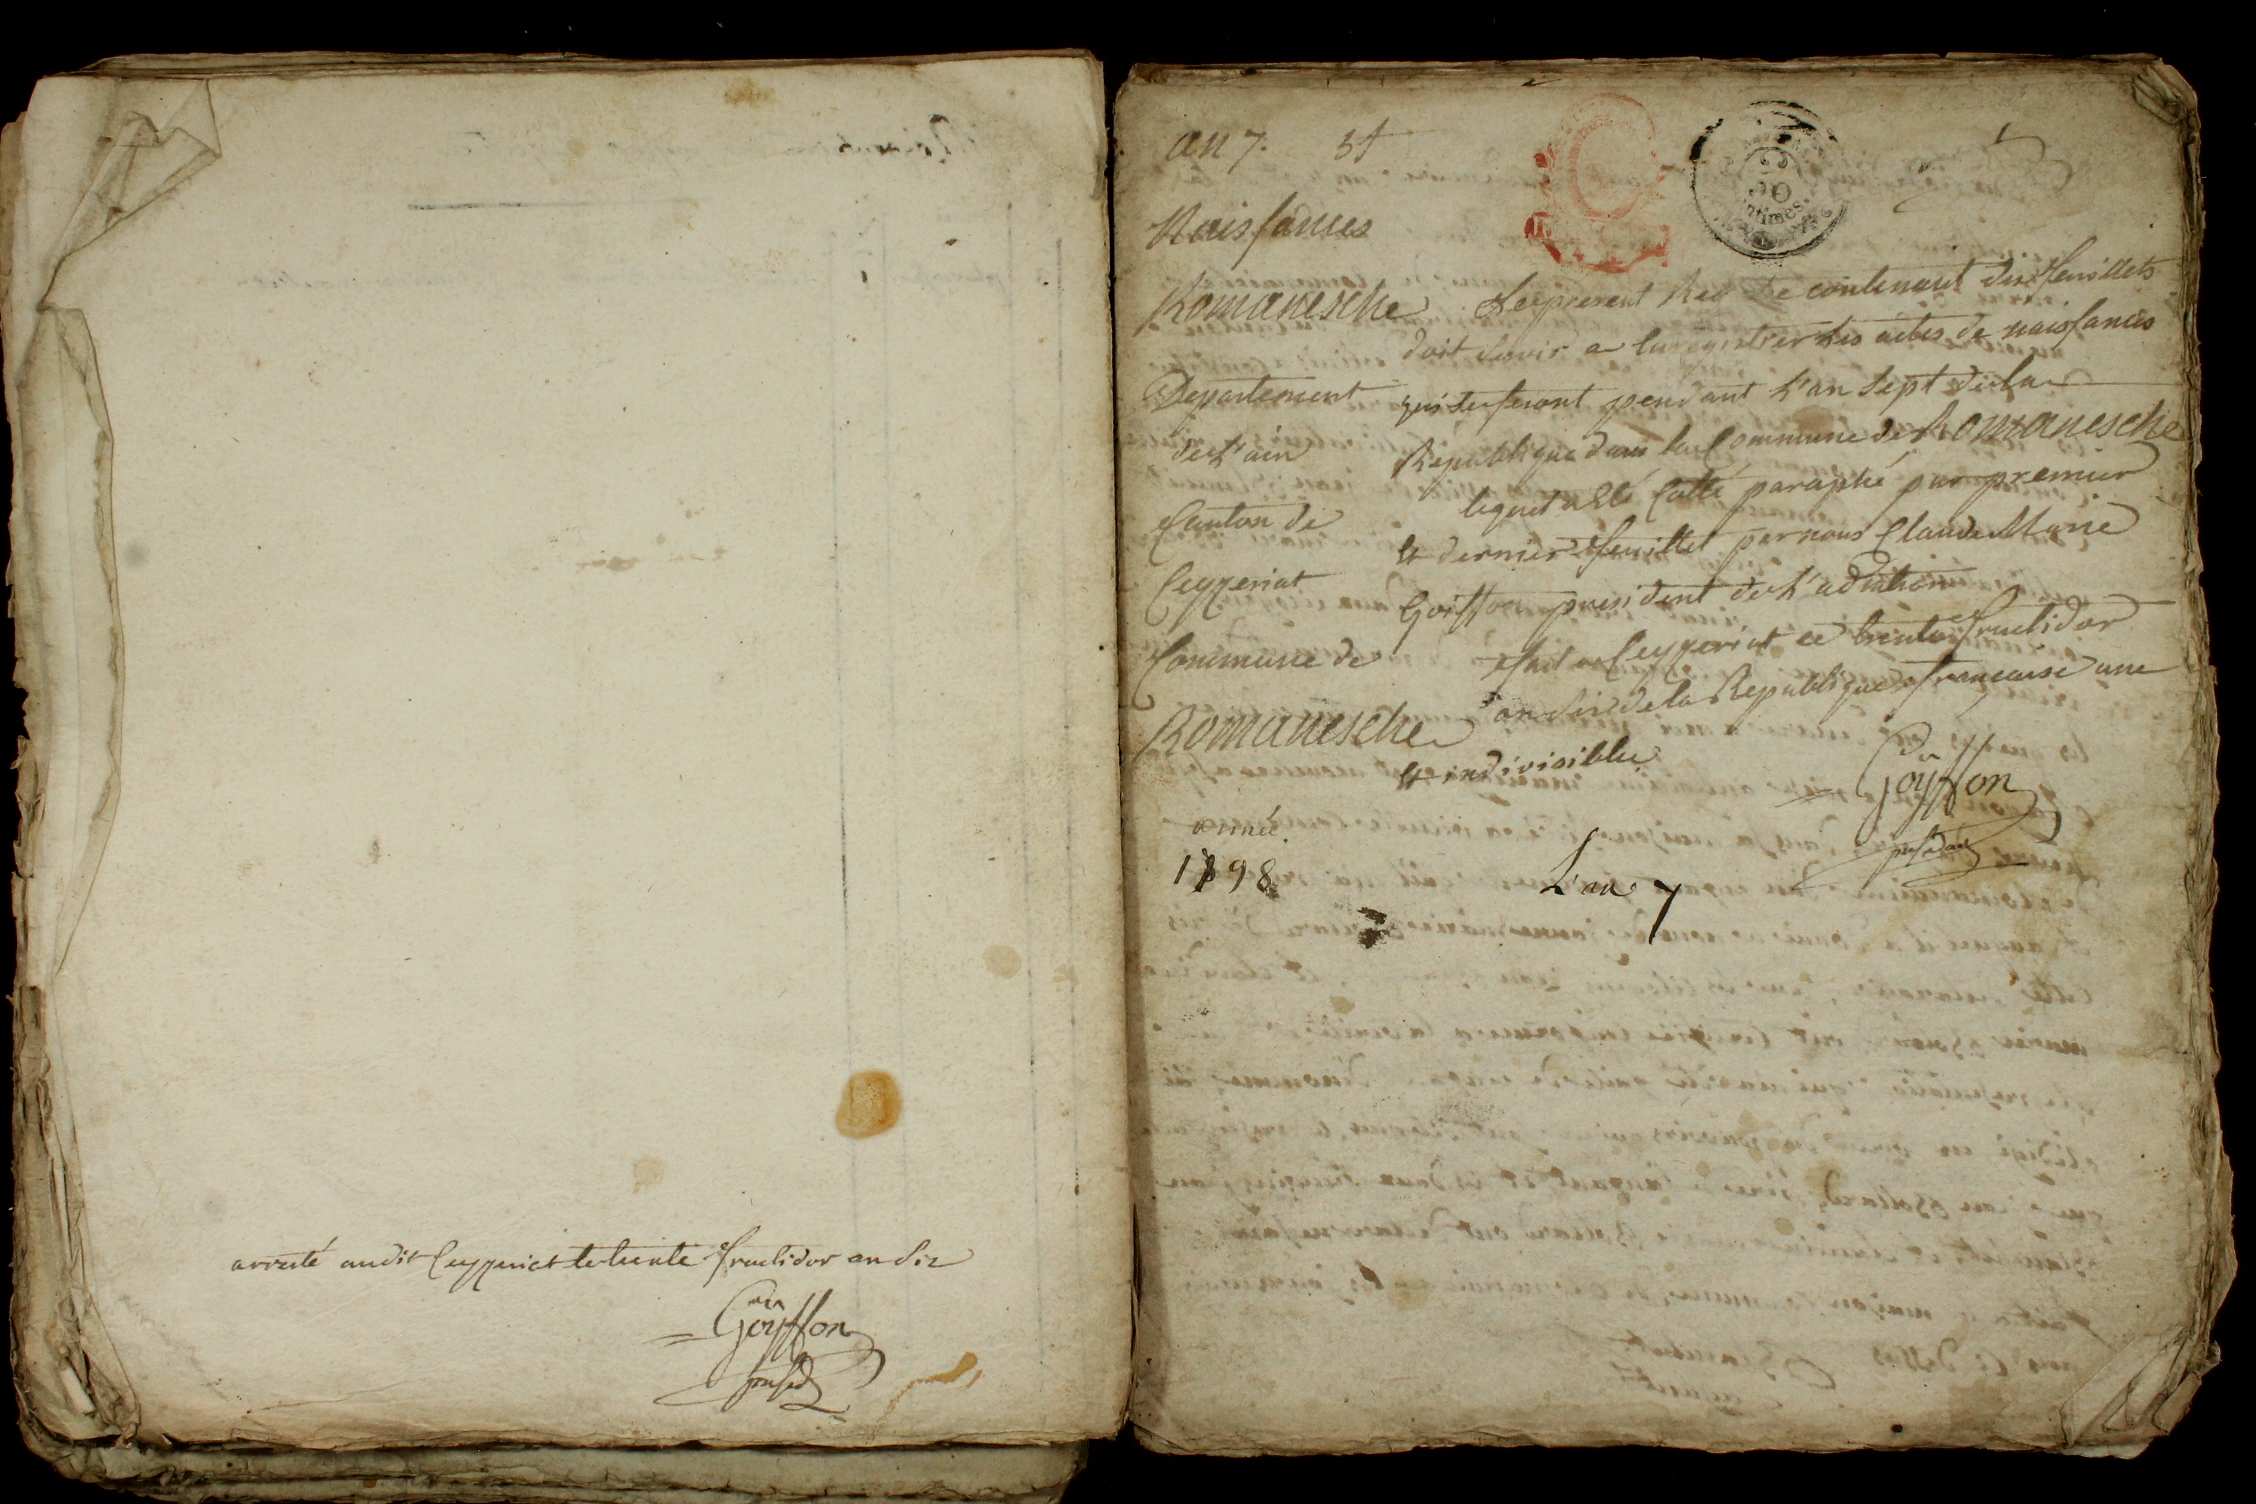 arreté audit Ceyzeriat le trente fructidor an six
Goÿffon
presid
an 7.
Naissances
Romanesche
Departement
de L'ain
Canton de
Ceyzeriat
Commune de
Romanesche
année
1798
Le present Registre contenant dix feuillets
doit servir a Enregistrer Les actes de naissances
qui se feront pendant L'an Sept de la
Republique dans la Commune de Romanesche
lequel a été Cotté paraphé par premier
et dernier feuillet par nous Claude Marie
Goiffon president de L'adtration
fait a Ceyzeriat ce trente fructidor
an six de la Republique francaise une
et indivisible
Goÿffon
presidt
L'an 7
50
centimes.